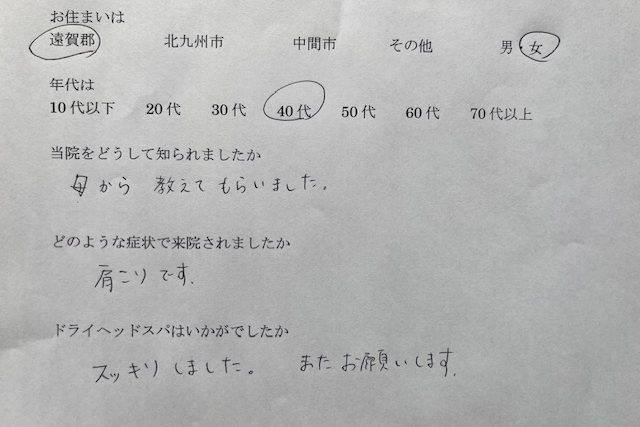 お住まいは
遠賀郡 北九州市 中間市 その他 男・女
年代は
10代以下 20代 30代 40代 50代 60代 70代以上
当院をどうして知られましたか
母から 教えてもらいました。
どのような症状で来院されましたか
肩こりです.
ドライヘッドスパはいかがでしたか
スッキリしました。 またお願いします.